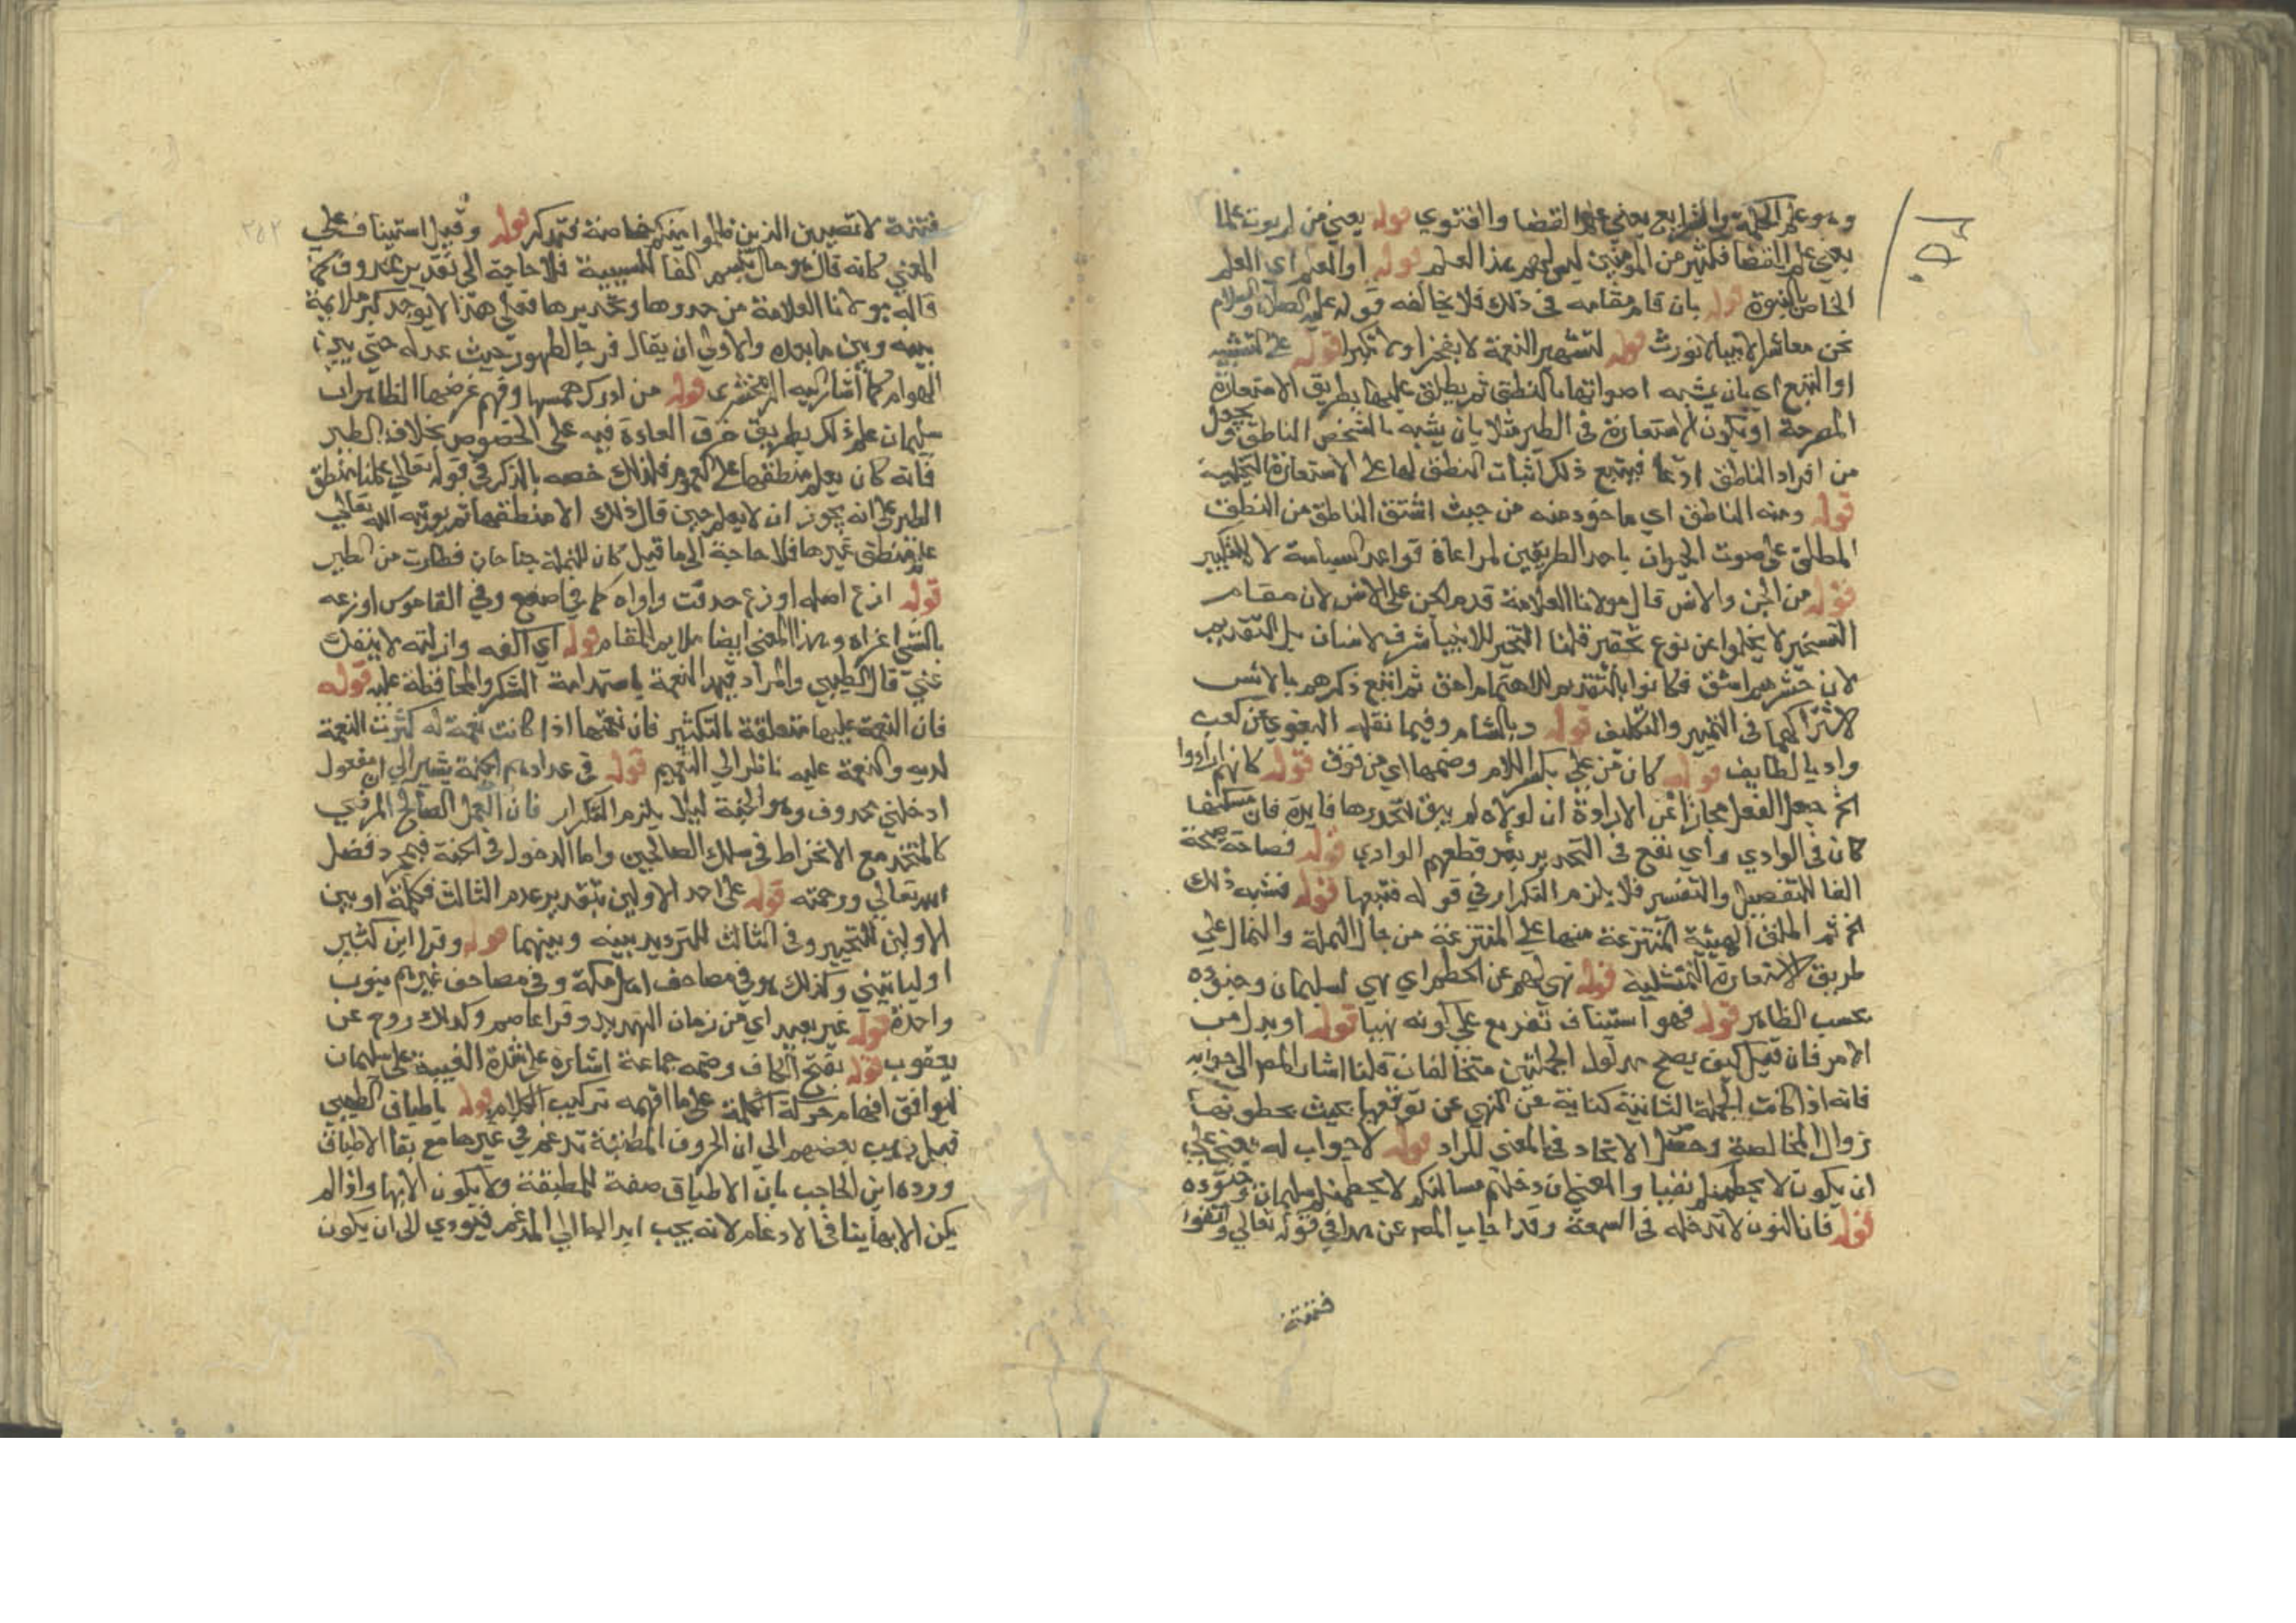 وهو علم الحكمة والشرايع يعني علم القضا والفتوي قوله يعني من لم يوت علما
يعني علم القضا فكثير من المومنين ليس لهم هذا العلم قوله او العلم اي العلم
الخاص بالنبوة قوله بان قام مقامه في ذلك فلا يخالفه قوله عليه الصلاة والسلام
نحن معاشر الانبيا لا نورث قوله لتشهير النعمة لا فخرا ولا تكبرا قوله على التشبيه
او التبع اي بان يشبه اصواتها بالنطق ثم يطلق عليها بطريق الاستعارة
المصرحة او تكون الاستعارة في الطير مثلا بان يشبه بالشخص الناطق ويجعل
من افراد الناطق ادعا فيتبع ذلك اثبات النطق لها على الاستعارة التخيلية
قوله ومنه الناطق اي ماخوذ منه من حيث اشتق الناطق من النطق
المطلق على صوت الحيوان باحد الطريقين لمراعاة قواعد السياسة لا للتكبر
قوله من الجن والانس قال مولانا العلامة قدم الجن على الانس لان مقام
التسخير لا يخلوا عن نوع تحقير قلنا التسخير للانبيا شرف لانسان بل التقديم
لان حشرهم اشق فكانوا بالتقديم للاهتمام احق ثم اتبع ذكرهم بالانس
لاشتراكهما في التمييز والتكليف قوله وبالشام وفيما نقله البغوي عن كعب
واد بالطايف قوله كان من علي بكسر اللام وضمها اي من فوق قوله كانهم ارادوا
الخ جعل الفعل مجازا عن الارادة ان لولاه لم يبق لتحذيرها فايدة فان مسكنها
كان في الوادي واي نفع في التحذير بعد قطعهم الوادي قوله فصاحة صيحة
الفا للتفصيل والتفسير فلا يلزم التكرار في قوله فتبعها قوله فشبه ذلك
الخ ثم اطلق الهيئة المنتزعة منها على المنتزعة من حال النملة والنمال علي
طريق الاستعارة التمثيلية قوله نهي لهم عن الحطم اي نهي لسليمان وجنوده
بحسب الظاهر قوله فهو استيناف تفريع علي كونه نهيا قوله او بدل من
الامر فان قيل كيف يصح مدلول الجملتين متخالفان قلنا اشار المص الى جوابه
فانه اذا كانت الجملة الثانية كناية عن النهي عن توقفها بحيث يحطمونها
زوال المخالصة وحصل الاتحاد في المعني المراد قوله لا جواب له يعني علي
ان يكون لا يحطمنكم نفيا والمعني ان دخلتم مساكنكم لا يحطمنكم سليمان وجنوده
قوله فان النون لا تدخله في السعة وقد اجاب المص عن هذا في قوله تعالي واتقوا
فتنة
فتنة لا تصيبن الذين ظلموا منكم خاصة فتذكر قوله وقيل استيناف علي
المعني كانه قال هو حال تبسم الفا للسببية فلا حاجة الى تقدير محذوف كما
قاله مولانا العلامة من حذرها وتحذيرها فعلي هذا لا يوجد كبير ملايمة
بينه وبين ما بعده والاولى ان يقال فرحا لظهور حيث عدله حتي بين
الهوام كما اشار اليه الزمخشري قوله من ادرك همسها وفهم غرضها الظاهر ان
سليمان علم ذلك بطريق خرق العادة فيه على الخصوص بخلاف الطير
فانه كان يعلم منطقها على العموم فلذلك خصه بالذكر في قوله تعالي علمنا منطق
الطير على انه يجوز ان لا يعلم حين قال ذلك الا منطقها ثم يوتيه الله تعالي
علم منطق غيرها فلا حاجة الي ما قيل كان للنملة جناحان فصارت من الطير
قوله ازع اصله اوزع حذفت واواه كما في اضع وفي القاموس اوزعه
بالشي اغراه وهذا المعني ايضا ملايم للمقام قوله اي الفه وازلته لا ينفك
عني قال الطيبي والمراد قيد النعمة باستدامة الشكر والمحافظة عليه قوله
فان النعمة عليهما متعلقة بالتكثير فان نعمتهما اذا كانت نعمة له كثرت النعمة
لديه والنعمة عليه ناظر الي التعميم قوله في عدادهم الجنة يشير الي ان مفعول
ادخلني محذوف وهو الجنة لئلا يلزم التكرار فان العمل الصالح المرضي
كالمتحد مع الانخراط في سلك الصالحين واما الدخول في الجنة فبمجرد فضل
الله تعالي ورحمته قوله على احد الاولين بتقدير عدم الثالث فكلمة او بين
الاولين للتخيير وفي الثالث للترديد بينه وبينهما قوله وقرا ابن كثير
اوليا تينني وكذلك هو في مصاحف اهل مكة وفي مصاحف غيرهم بنون
واحدة قوله غير بعيد اي من زمان التهديد وقرا عاصم وكذلك روح عن
يعقوب قوله بفتح الكاف وضمه جماعة اشارة على شدة الغيبة على سليمان
ليوافق افهام حركة الكلمة على ما افهمه تركيب الكلام قوله باطباق الطيبي
قيل ذهب بعضهم الي ان الحروف المطبقة تدغم في غيرها مع بقا الاطباق
ورده ابن الحاجب بان الاطباق صفة للمطبقة ولا يكون الا بها واذا لم
يكن الا بها ينافي الادغام لانه يجب ابدالها الي المدغم فيودي الى ان يكون
٢٥٢